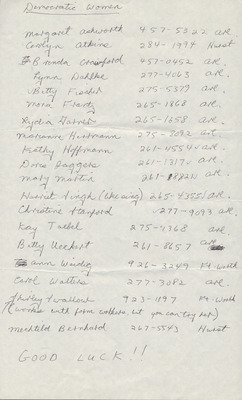 Democratic Women
Margaret Ashworth 457-5322 arl.
Carolyn Atkins 284-1994 Hurst
Brenda Crawford 457-0452 arl.
Lynn Dahlke 277-4063 arl.
Betty Fischer 275-5379 arl.
Nora 265-1868 arl.
Lydia 265-1658 arl.
Marianne Hartmann 275-3092 arl.
Kathy Hoffmann 261-4554 arl.
Doris Jaggers 261-1317 arl.
Mary Martin 261- arl.
265-4355 arl.
Christine Hanford 277-9093 arl.
Kay Taebel 275-1368 arl.
Betty Ueckert 261-8657 arl
Ann 926-3249 Ft. Worth
Carol Watters 277-3082 arl.
Shirley Swallow 923-1197 Ft. Worth
(works with form walkers, but you can try her)
Mechtild Bernhard 267-5543 Hurst
GOOD LUCK!!